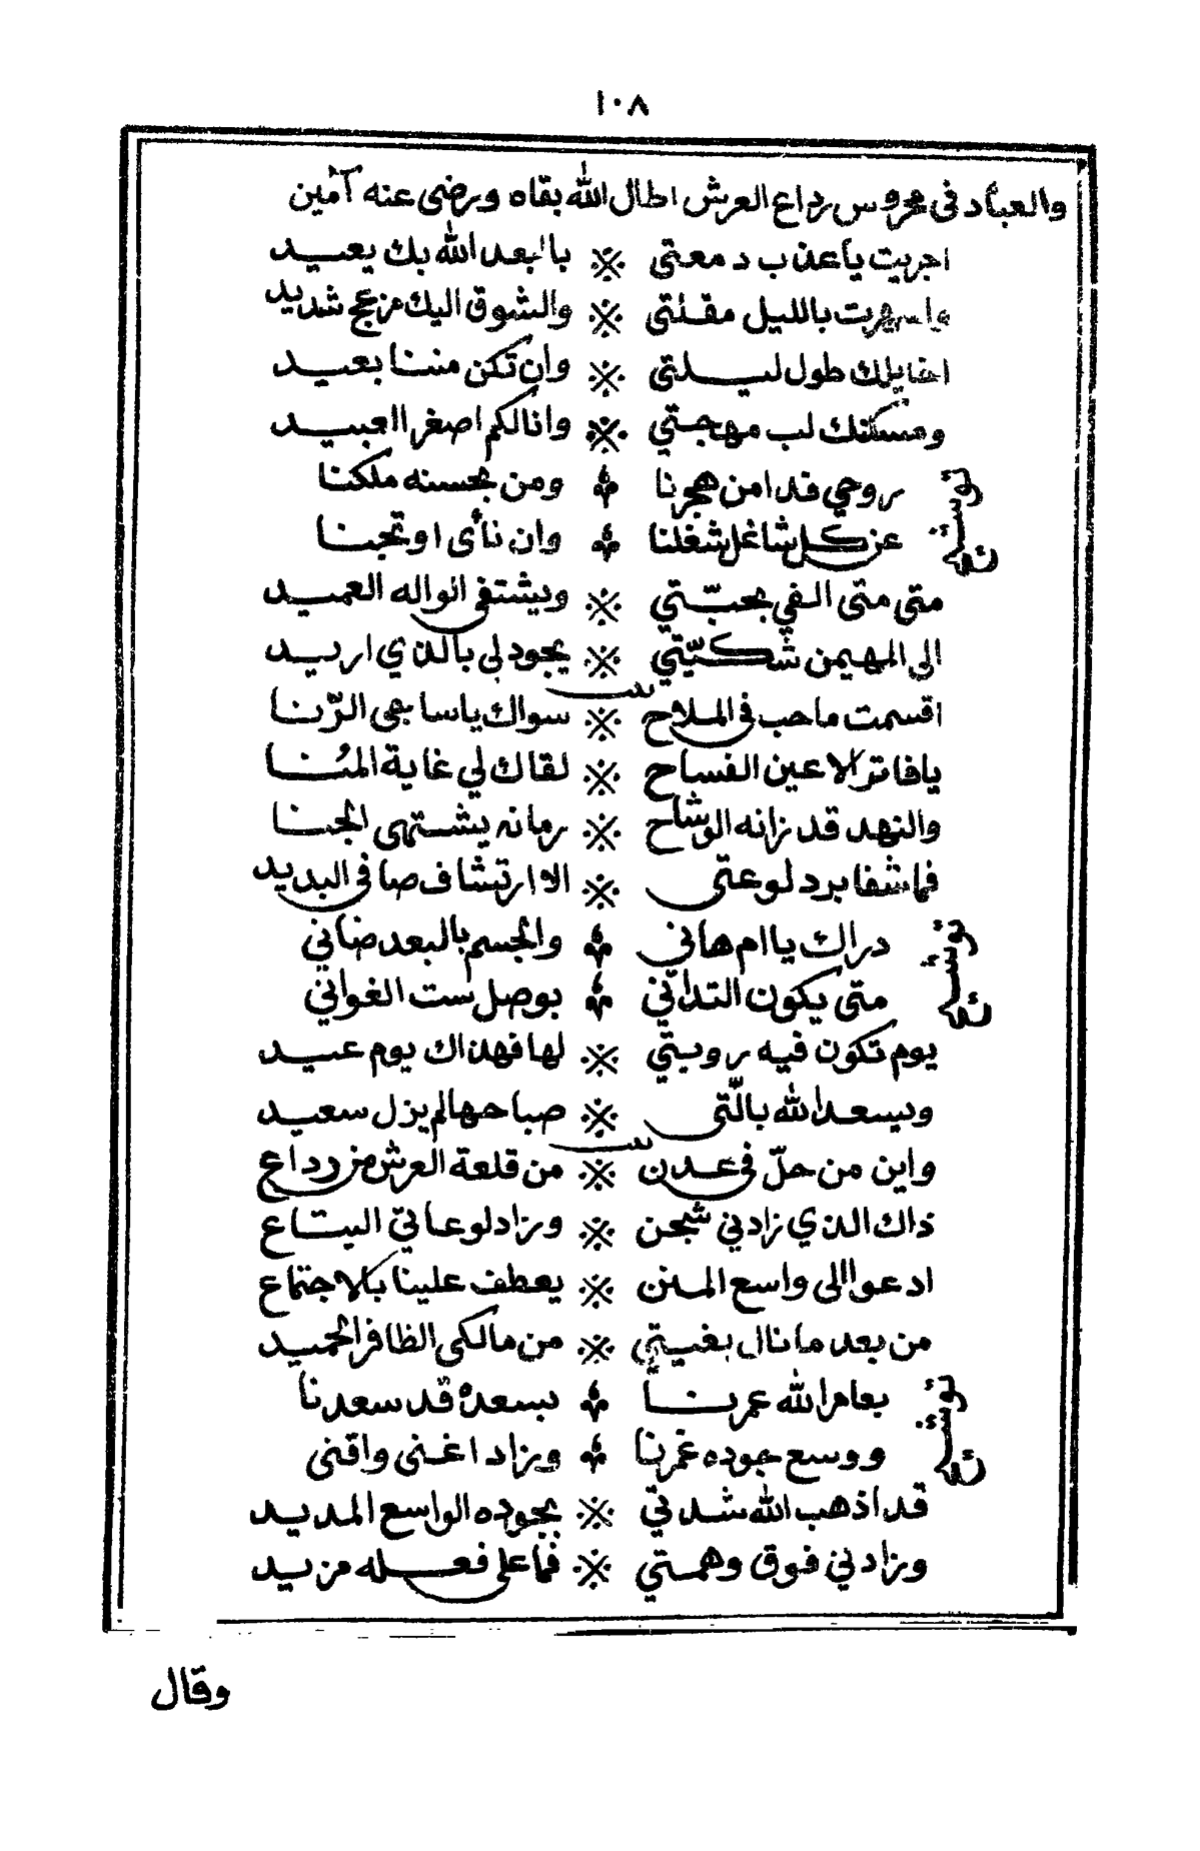 ١٠٨
والعباد في محروس رداع العرش اطال الله بقاه ورضى عنه آمين
اجريت ياعذب دمعتي ※ بالبعد الله بك يعيد
واسهرت بالليل مقلتي ※ والشوق اليك مزعج شديد
اخايلك طول ليلتي ※ وان تكن مننا بعيد
ومسكنك لب مهجتي ※ وانا لكم اصغر العبيد
توشيح
روحي قد امن هجرنا ومن بحسنه ملكنا
عن كل شاغل شغلنا وان نأى او تجنا
متى متى الفي بحبّتي ※ ويشتفي الواله العميد
الى المهيمن شكيّتي ※ يجود لي بالذي اريد
بيت
اقسمت ماحب في الملاح ※ سواك ياساجي الرّنا
يافاتر الاعين الفساح ※ لقاك لي غاية المُنا
والنهد قد زانه الوشاح ※ رمانه يشتهى الجنا
فما شفا برد لوعتي ※ الا ارتشاف صافي البديد
توشيح
دراك ياام هاني والجسم بالبعد ضاني
متى يكون التداني بوصل ست الغواني
يوم تكون فيه رويتي ※ لها فهذاك يوم عيد
ويسعد الله بالّتي ※ صباحها لم يزل سعيد
بيت
واين من حلّ في عدن ※ من قلعة العرش من رداع
ذاك الذي زادني شجن ※ وزاد لوعاتي اليتاع
ادعو الى واسع المنن ※ يعطف علينا بالاجتماع
من بعد ما نال بغيتي ※ من مالكي الظافر الحميد
توشيح
بعامر الله عمرنا بسعده قد سعدنا
ووسع جوده غمرنا وزاد اغنى واقنى
قد اذهب الله شدتي ※ بجوده الواسع المديد
وزادني فوق وهمتي ※ فما على فعله مزيد
وقال